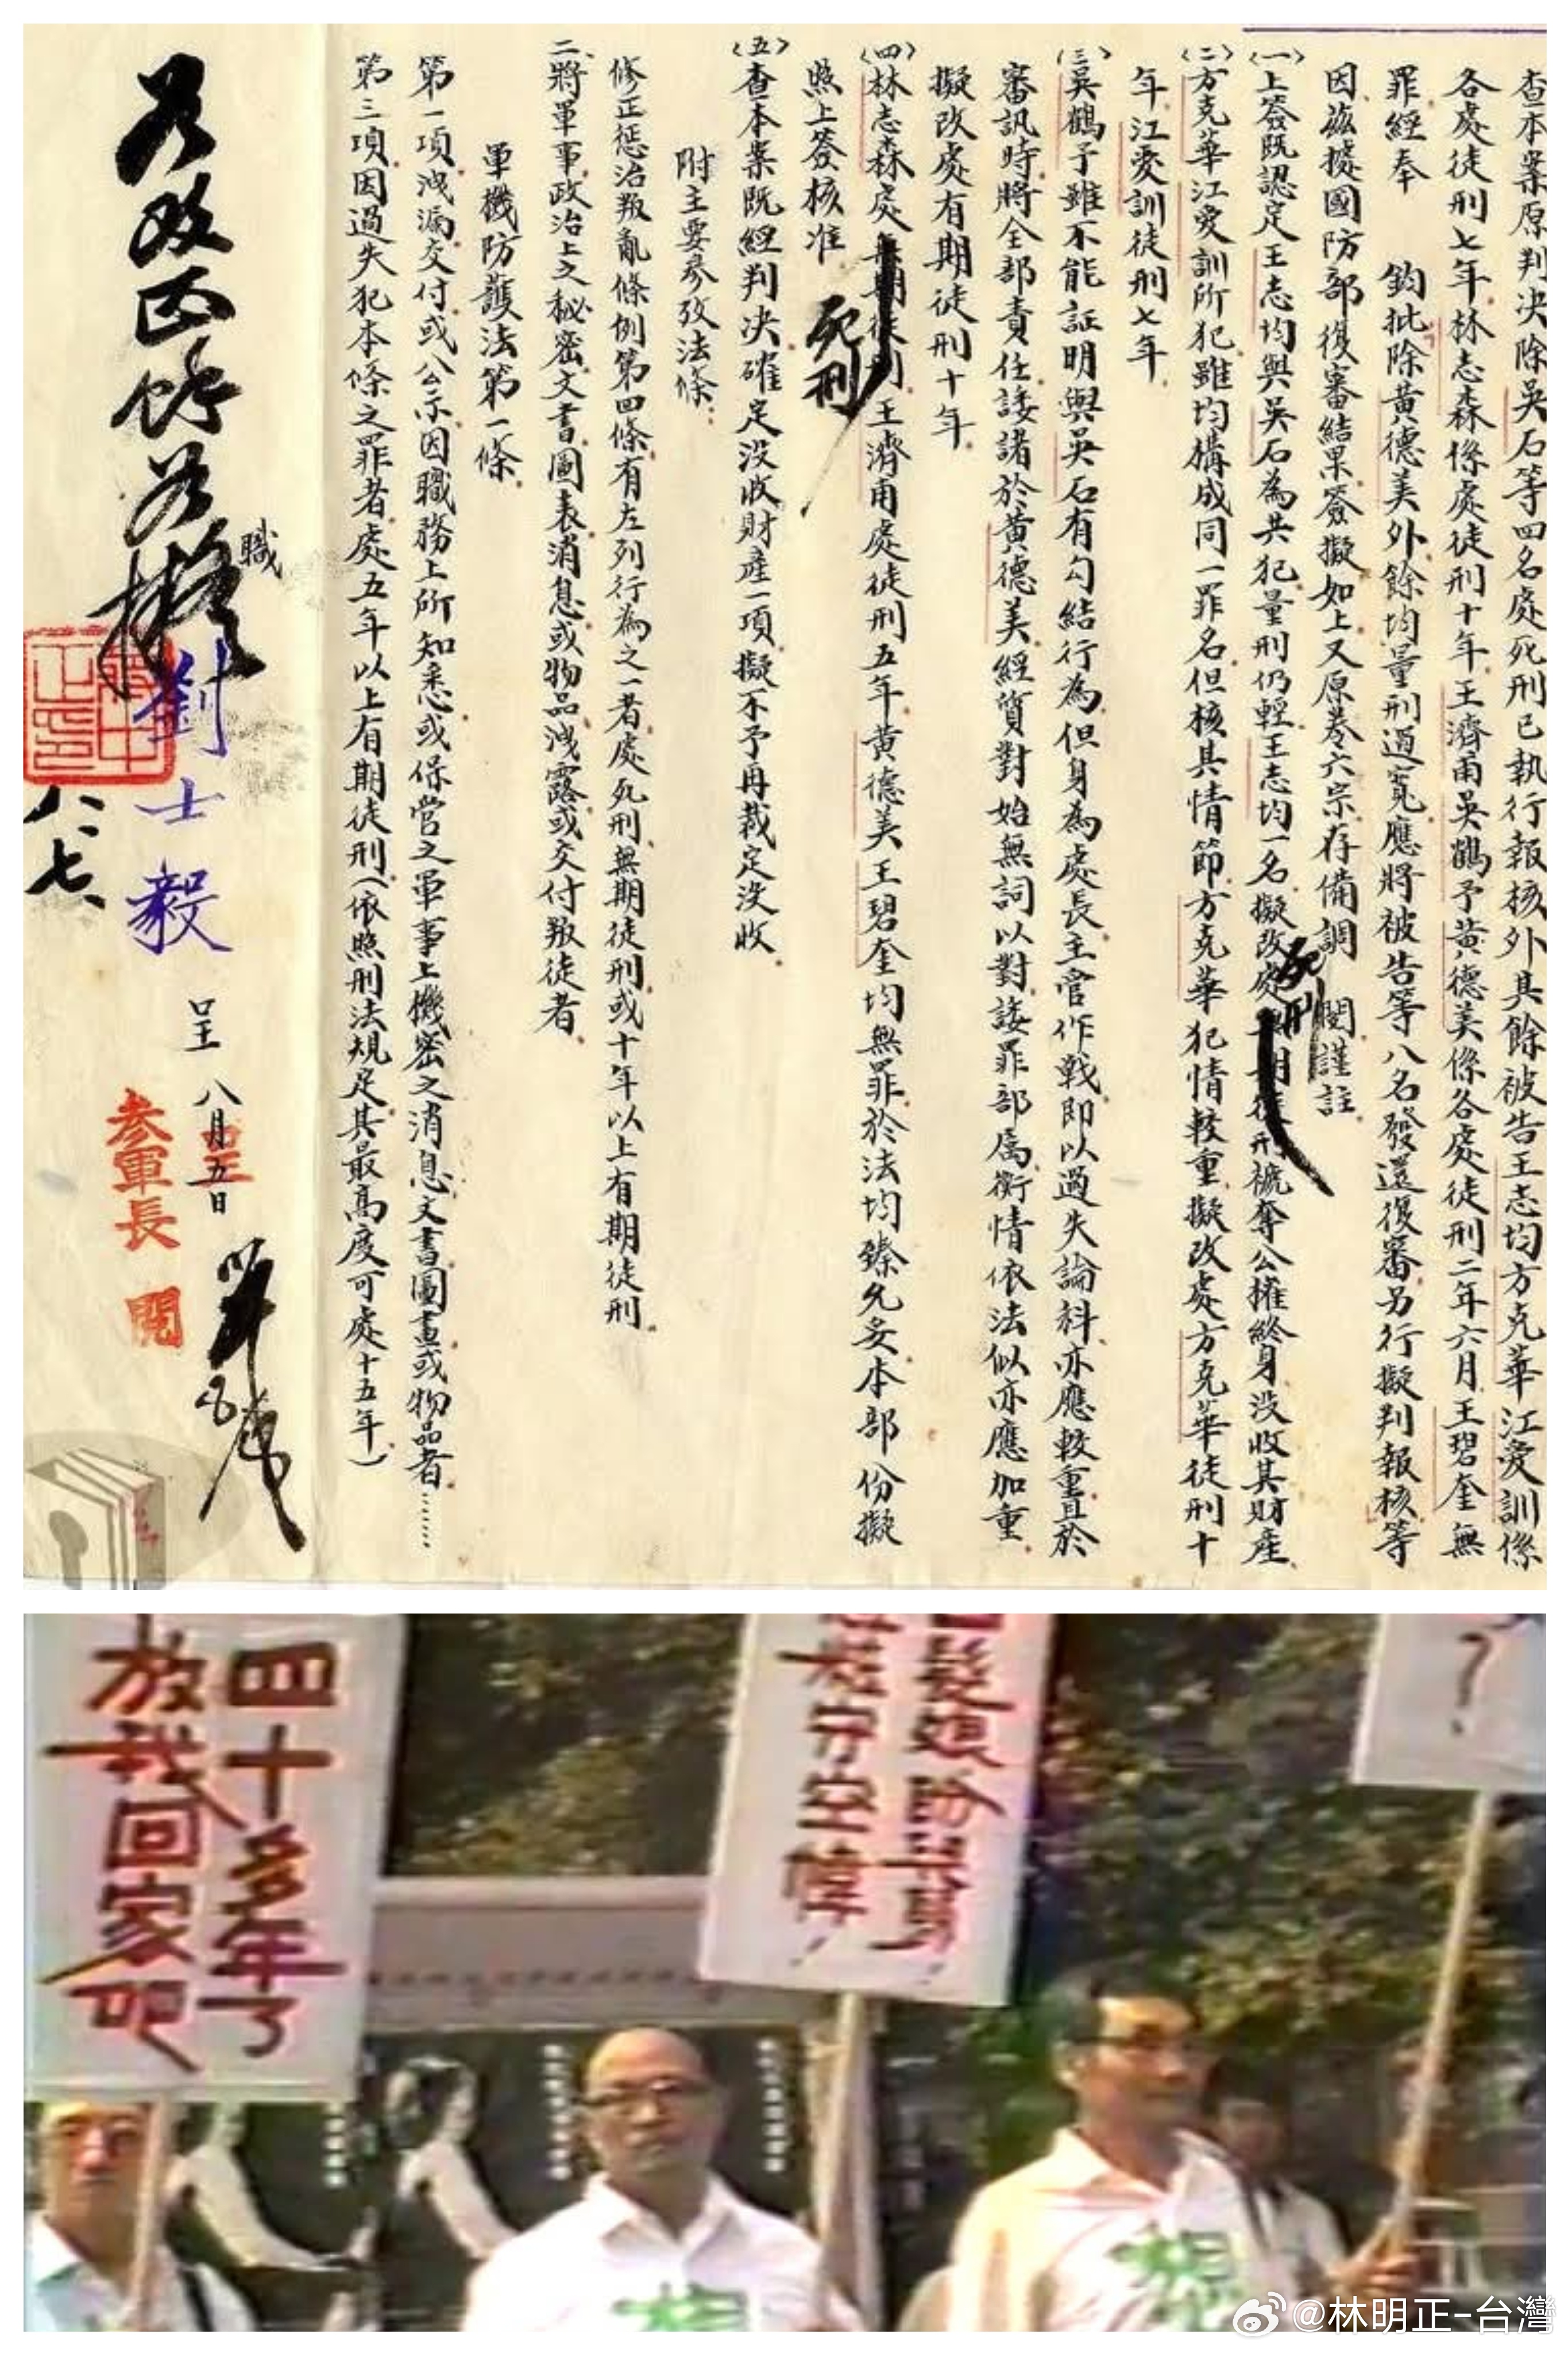 查本案原判决除吳石等四名處死刑已執行報核外其餘被告王志均方克華江愛訓係
各處徒刑七年林志森係處徒刑十年王濟甫吳鶴予黃德美係各處徒刑二年六月王碧奎無
罪經奉　鈞批除黃德美外餘均量刑過寬應將被告等八名發還復審另行擬判報核等
因茲據國防部復審結果簽擬如上又原卷六宗存備調閱謹註
〈一〉上簽既認定王志均與吳石為共犯量刑仍輕王志均一名擬改處無期徒刑褫奪公權終身沒收其財產
死刑
〈二〉方克華江愛訓所犯雖均構成同一罪名但核其情節方克華犯情較重擬改處方克華徒刑十
年江愛訓徒刑七年
〈三〉吳鶴予雖不能証明與吳石有勾結行為但身為處長主官作戰即以過失論科亦應較重且於
審訊時將全部責任諉諸於黃德美經質對始無詞以對諉罪部屬衡情依法似亦應加重
擬改處有期徒刑十年
〈四〉林志森處無期徒刑王濟甫處徒刑五年黃德美王碧奎均無罪於法均臻允妥本部份擬
死刑
照上簽核准
〈五〉查本案既經判決確定沒收財產一項擬不予再裁定沒收
附主要參攷法條：
修正懲治叛亂條例第四條有左列行為之一者處死刑無期徒刑或十年以上有期徒刑
二、將軍事政治上之秘密文書圖表消息或物品洩露或交付叛徒者
軍機防護法第一條
第一項洩漏交付或公示因職務上所知悉或保管之軍事上機密之消息文書圖畫或物品者……
第三項因過失犯本條之罪者處五年以上有期徒刑（依照刑法規定其最高度可處十五年）
職
劉士毅
呈
八月五日
呈
參軍長 閱
八、七、
四十多年了
放我回家吧
髮娘盼兒歸！
守空幃！
？
想
想
@林明正-台灣